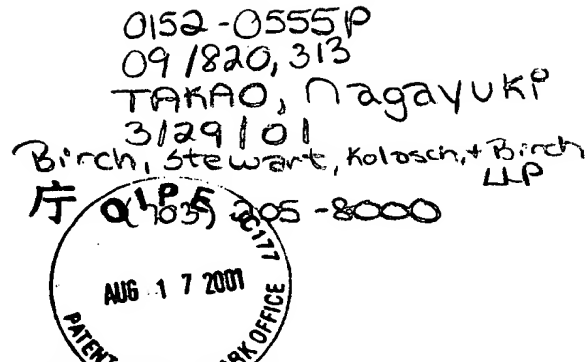 0152-0555P
09/820,313
TAKAO, Nagayuki
3/29/01
Birch, Stewart, Kolasch, + Birch
LLP
庁 (703) 205-8000
OIPE JC177
AUG 17 2001
PATENT
RK OFFICE